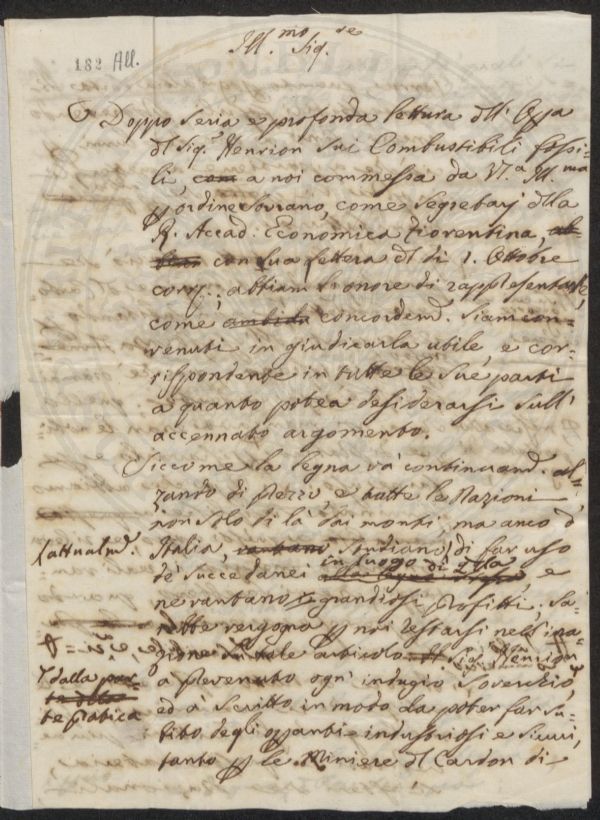 182 All.
Ill.mo Sig.re
Doppo seria e profonda lettura dll' Opa
dl Sig.r Henrion sui Combustibili fossi-
li, com a noi commessa da V.a Ill.ma
p ordine Sovrano, come Segretary dlla
R. Accad. Economica Fiorentina,
con sua lettera dl dì 1. Ottobre
corr., abbiam l'onore di rappresentarle,
come concordemd. siam con-
venuti in giudicarla utile, e cor-
rispondente in tutte le sue parti
a quanto potea desiderarsi sull'
accennato argomento.
Siccome la legna va continuamd. al-
zando di prezzo, e tutte le Nazioni
non solo di là dai monti, ma anco d'
Lattualmd. Italia, vantano studiano di far uso
de' succedanei in luogo di e
ne vantano grandiosi profitti; sa-
rebbe vergogna p noi restarsi nell' ina-
zione su tale articolo Il Sig.r Henrion
dalla par- à prevenuto ogni indugio soverchio,
te pratica ed à scritto in modo da poter far su-
bito degli ozzanti industriosi e sicuri,
tanto p le Miniere dl Cardon di-